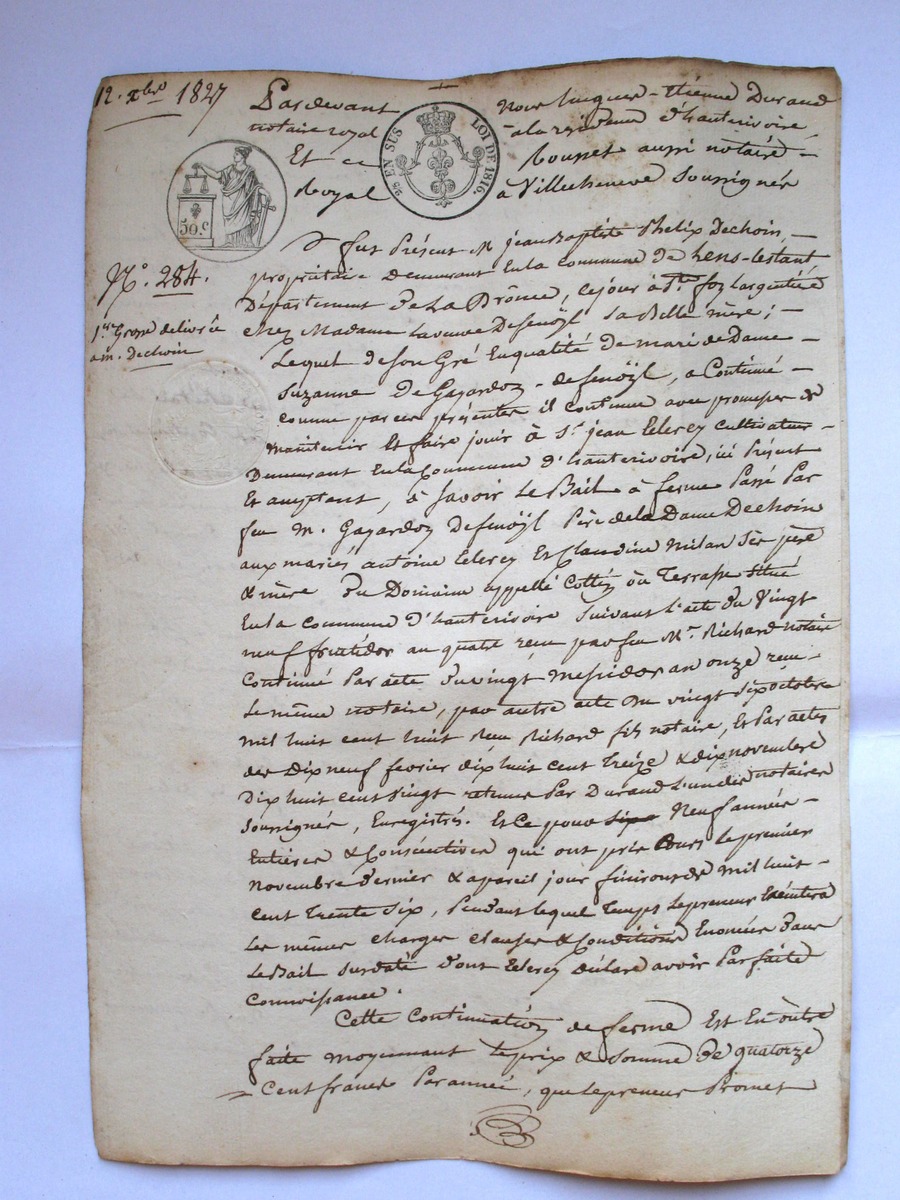 12. xbre 1827
Pardevant Nous Jacques-Etienne Durand
notaire royal à la résidence d'hauterivoire,
Et Rousset aussi notaire -
Royal à Villecheneve soussignés
25 EN SUS LOI DE 1816.
50.C
N.o 284.
1.re Grosse delivrée
a m. Dechoin
fut Présent M. jean Baptiste Phelix Dechoin, -
propriétaire Demeurant En la commune de Lens-Lestant
Département De La Drôme, cejour à S.te foy Largentière
chez Madame La veuve Desenöyl sa Belle mère; -
Lequel de son Gré En qualité de mari de Dame -
Suzanne De Gayardon - desenöyl, a Continué -
comme par ces présentes il continue avec promesse de
maintenir Et faire jouir à S.r jean Clerey cultivateur -
Demeurant En la Commune d'hauterivoire, ici Présent
Et acceptant, à Savoir Le Bail à ferme Passé Par
feu M. Gayardon Desenöyl Père de la Dame Dechoin
aux mariés antoine Clerey Et Claudine Milan Ses père
& mère Du Domaine appellé Cottey où Terrasse Situé
En la commune d'hauterivoire Suivant l'acte Du Vingt
neuf fructidor an quatre reçu par feu M.e Richard notaire
Continué Par acte Du vingt Messidor an onze reçu -
Le même notaire, par autre acte Du vingt Six octobre
mil huit cent huit Reçu Richard fils notaire, Et Par actes
des Dix neuf février dix huit cent Treize & dix novembre
Dix huit cent vingt retenus Par Durand L'un des notaires
Soussignés, Enregistrés. Et Ce pour Six Neuf années -
Entières & Consécutives qui ont pris Cours Le premier
novembre Dernier & a pareil jour finiront de Mil huit -
cent Trente Six, Pendant lequel Temps Le preneur Exécutera
Les mêmes charges clauses & Conditions Enoncées Dans
Le Bail Surdaté d'ont Clerey déclare avoir Parfaite
Connoissance.
Cette Continuation de ferme Est En outre
faite moyennant Le prix & somme De quatorze
Cent francs Par année, que Le preneur Promet